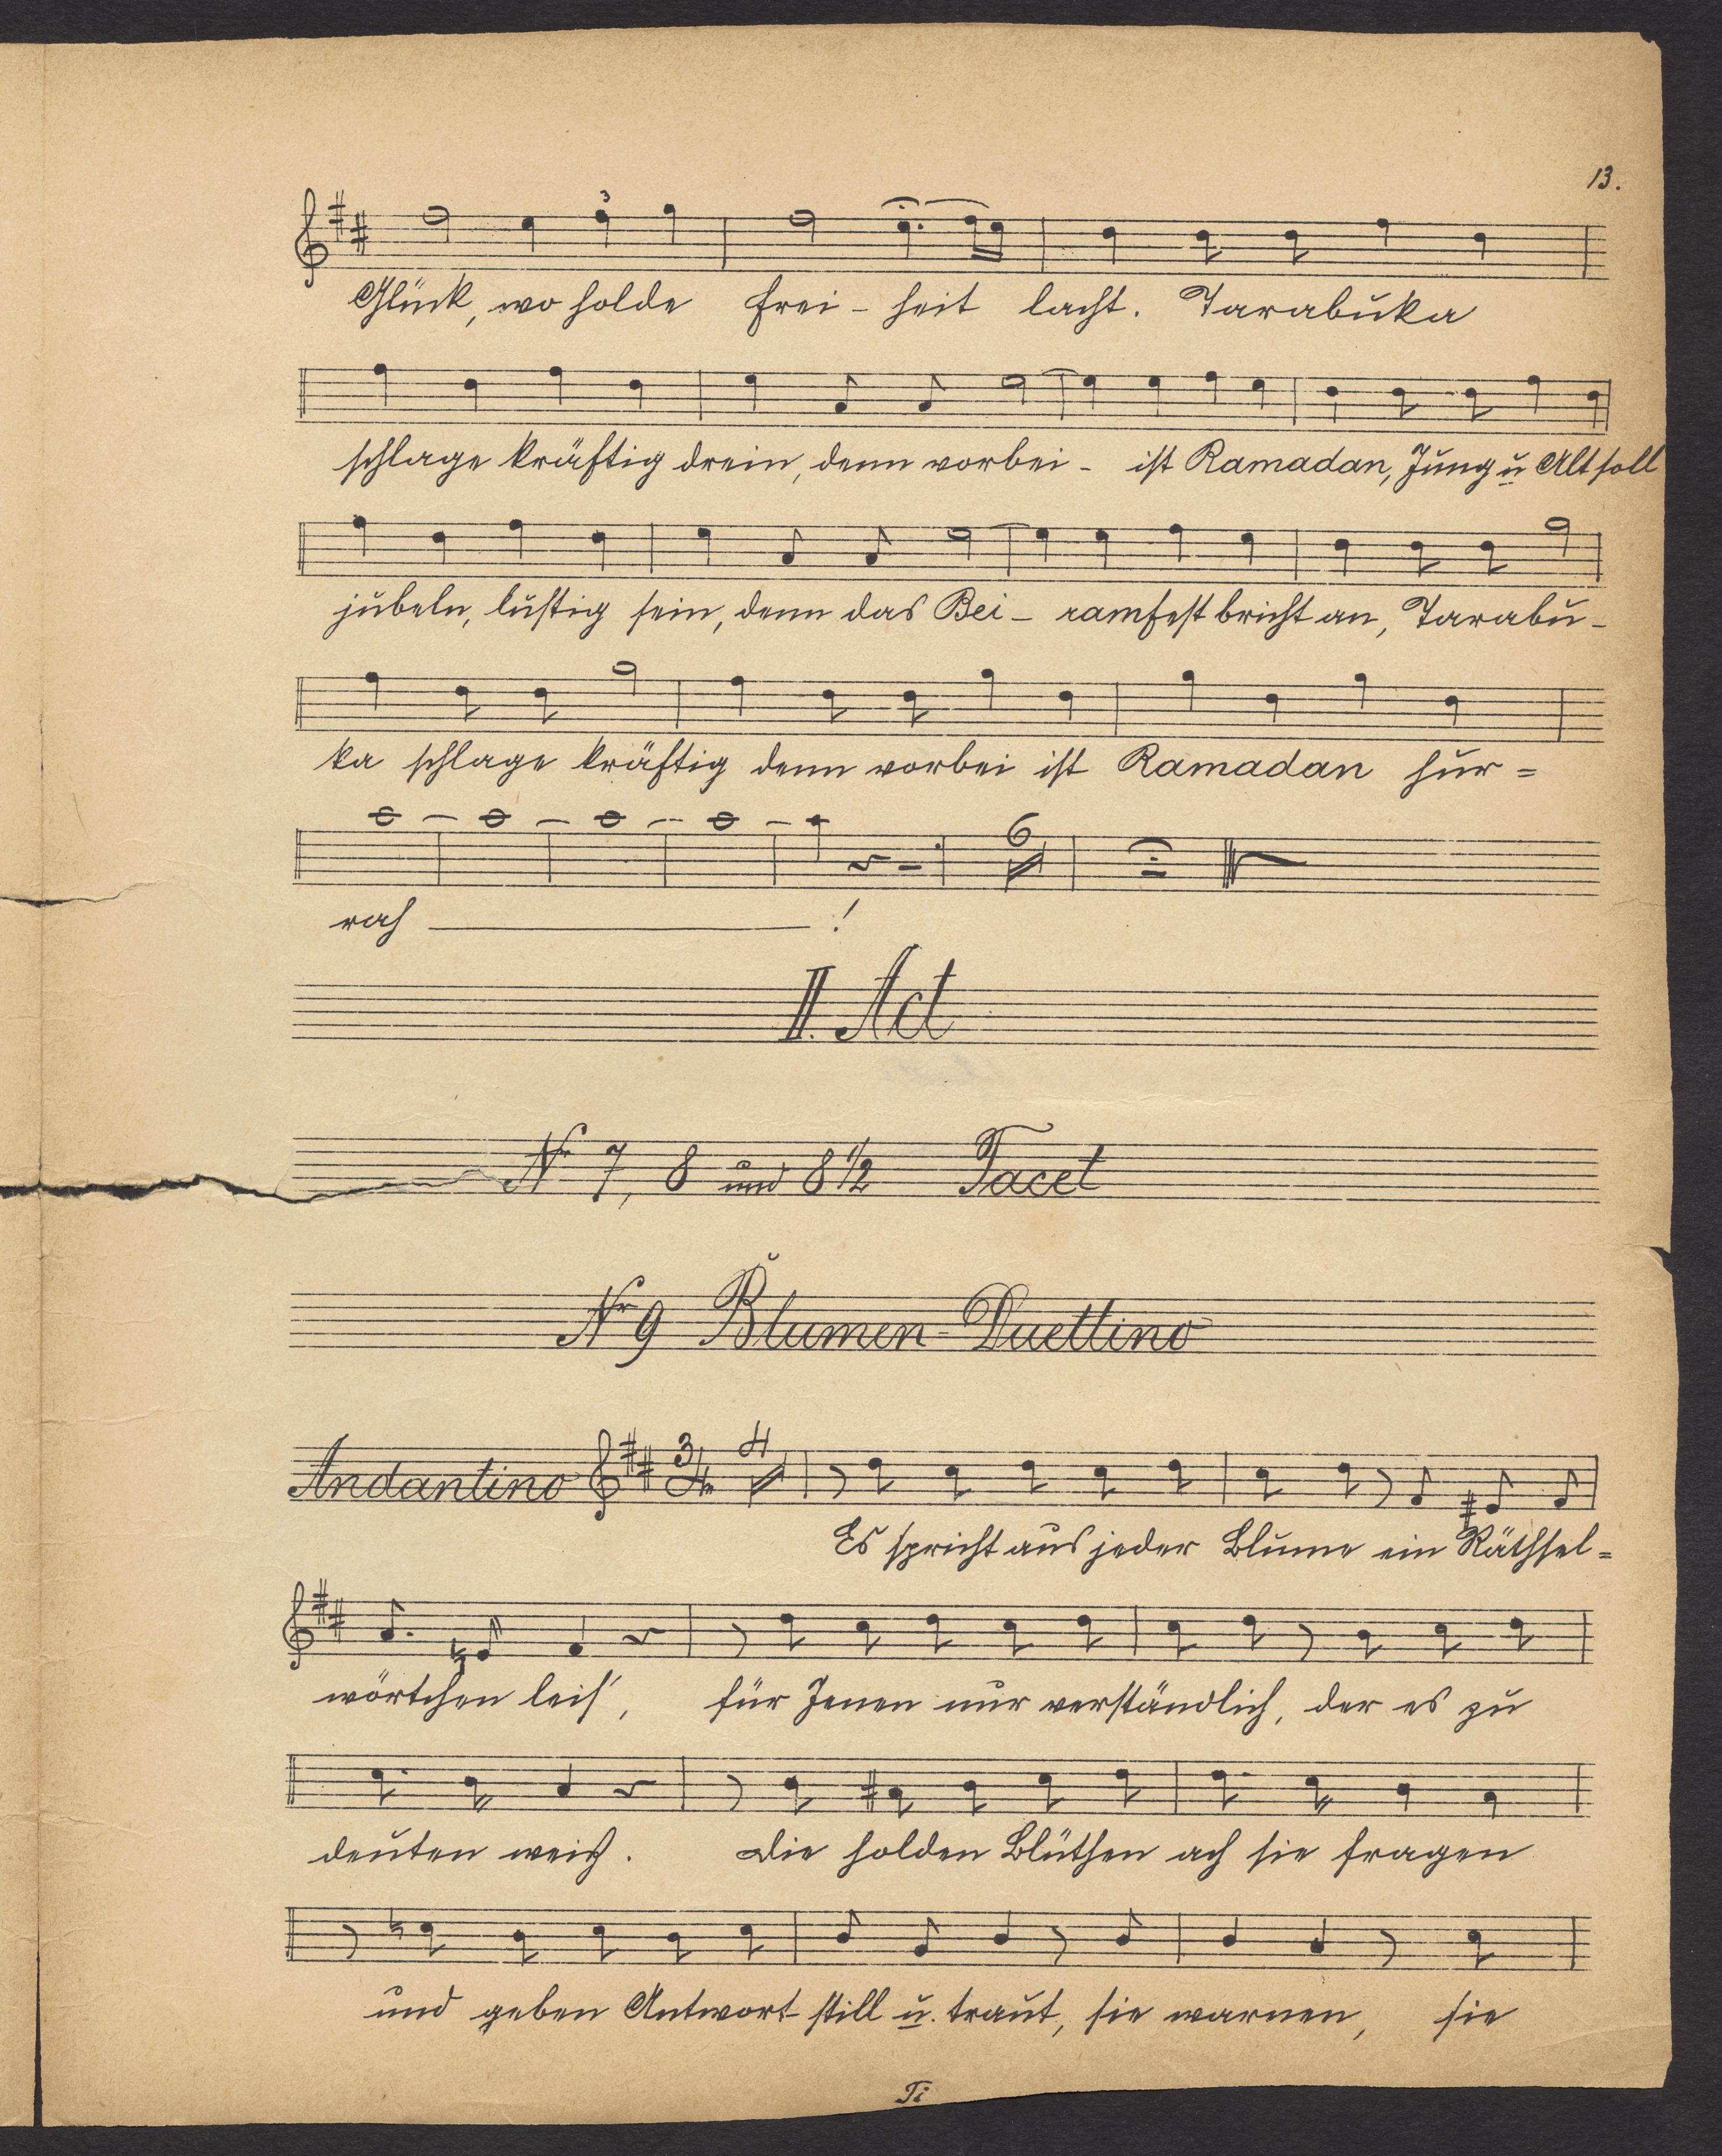 13.
3
Glück, wo holde Frei - heit lacht. Tarabuka
schlage kräftig drein, denn vorbei - ist Ramadan, Jung u Alt soll
jubeln, lustig sein, denn das Bei - ramfest bricht an, Tarabu -
ka schlage kräftig denn vorbei ist Ramadan hur =
6
rah !
II. Act
Nr 7, 8 und 8 1/2 Tacet
Nr 9 Blumen-Duettino
Andantino 3/4 4
Es spricht aus jeder Blume ein Räthsel =
wörtchen leis', für Jenen nur verständlich, der es zu
deuten weiß. Die holden Blüthen ach sie fragen
und geben Antwort still u. traut, sie warnen, sie
Ti